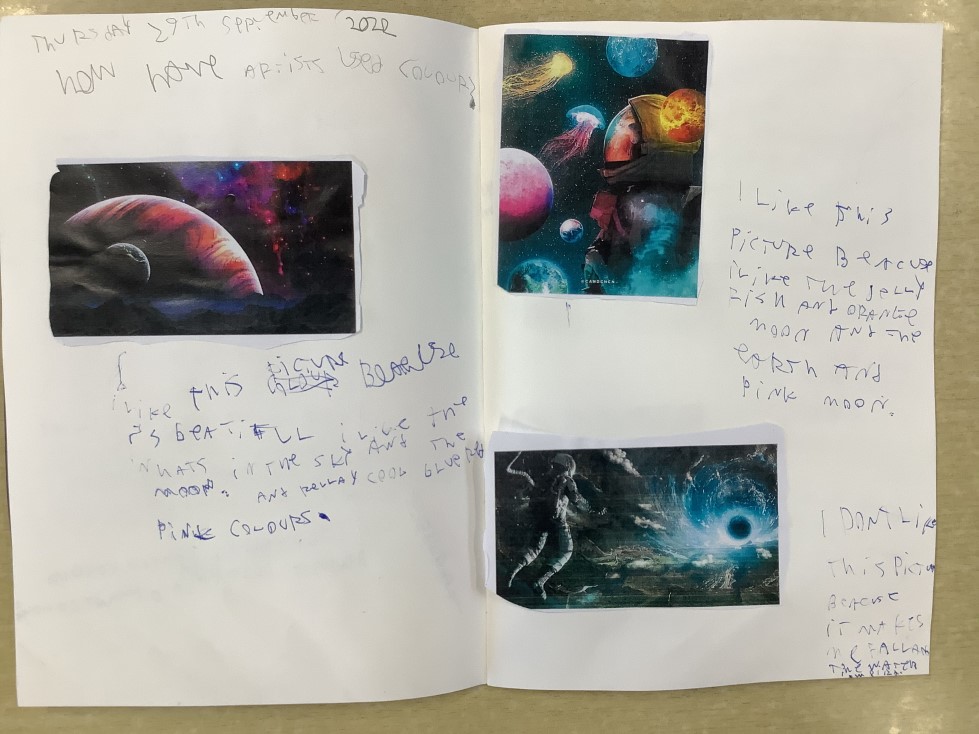 THURSDAY 29TH SEPTEMBER 2022
HOW HAVE ARTISTS USED COLOURS
I LIKE THIS PICTURE BEACUSE
ITS BEATIFUL I LIKE THE
WHATS IN THE SKY AND THE
MOON. AND RELLAY COOL BLUE RED
PINK COLOURS.
I LIKE THIS
PICTURE BEACUSE
I LIKE THE JELLY
FISH AND ORANGE
MOON AND THE
EARTH AND
PINK MOON.
I DONT LIKE
THIS PICTURE
BEACUSE
IT MAKES
ME FALL
THE WATER